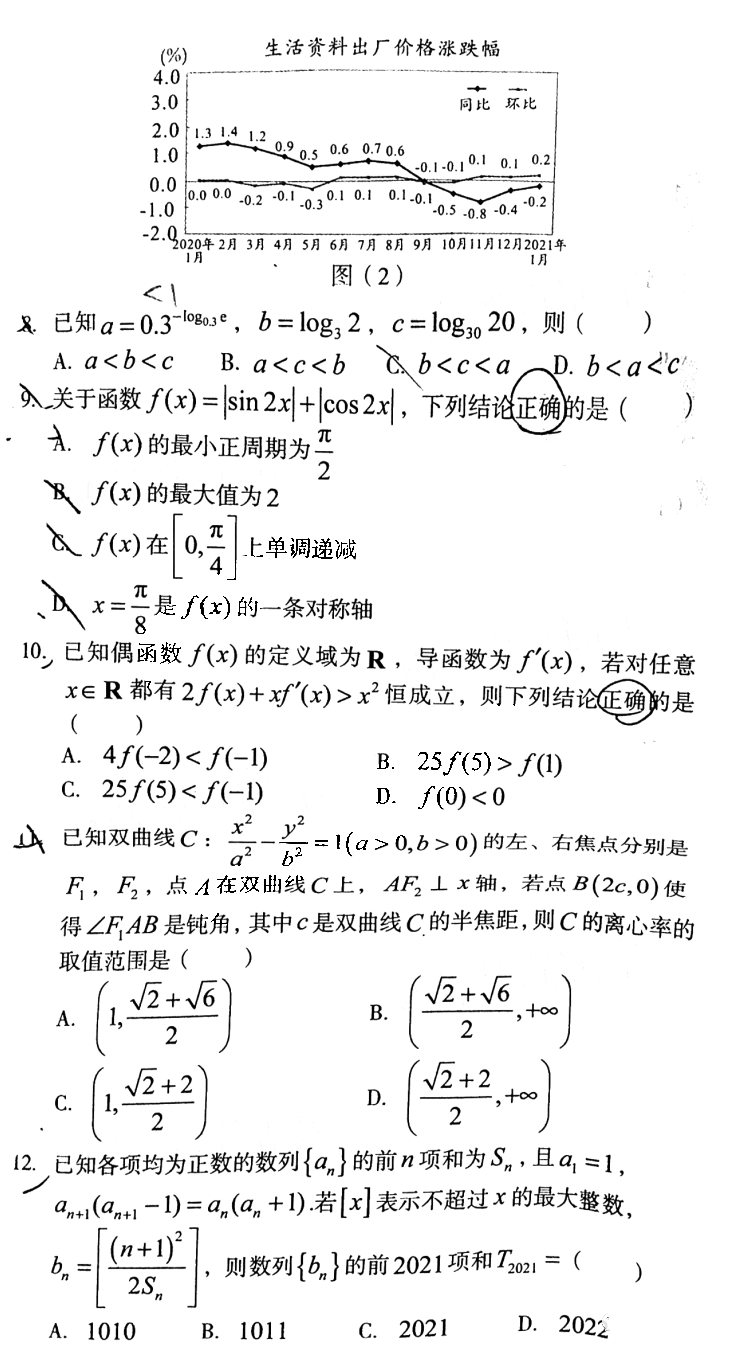 生活资料出厂价格涨跌幅
(%)
4.0
3.0
2.0
1.0
0.0
-1.0
-2.0
同比 环比
1.3 1.4 1.2 0.9 0.5 0.6 0.7 0.6 -0.1 -0.1 0.1 0.1 0.2
0.0 0.0 -0.2 -0.1 -0.3 0.1 0.1 0.1 -0.1 -0.5 -0.8 -0.4 -0.2
2020年1月 2月 3月 4月 5月 6月 7月 8月 9月 10月 11月 12月 2021年1月
图（2）
<1
8. 已知 a = 0.3^{-log_{0.3} e}，b = log_3 2，c = log_{30} 20，则（ ）
A. a < b < c B. a < c < b C. b < c < a D. b < a < c
9. 关于函数 f(x) = |sin 2x| + |cos 2x|，下列结论正确的是（ ）
A. f(x) 的最小正周期为 π/2
B. f(x) 的最大值为 2
C. f(x) 在 [0, π/4] 上单调递减
D. x = π/8 是 f(x) 的一条对称轴
10. 已知偶函数 f(x) 的定义域为 R，导函数为 f′(x)，若对任意
x∈R 都有 2f(x) + xf′(x) > x² 恒成立，则下列结论正确的是
（ ）
A. 4f(−2) < f(−1) B. 25f(5) > f(1)
C. 25f(5) < f(−1) D. f(0) < 0
11. 已知双曲线 C：x²/a² − y²/b² = 1(a > 0, b > 0) 的左、右焦点分别是
F₁，F₂，点 A 在双曲线 C 上，AF₂ ⊥ x 轴，若点 B(2c,0) 使
得 ∠F₁AB 是钝角，其中 c 是双曲线 C 的半焦距，则 C 的离心率的
取值范围是（ ）
A. (1, (√2+√6)/2) B. ((√2+√6)/2, +∞)
C. (1, (√2+2)/2) D. ((√2+2)/2, +∞)
12. 已知各项均为正数的数列{aₙ}的前 n 项和为 Sₙ，且 a₁ = 1，
aₙ₊₁(aₙ₊₁ − 1) = aₙ(aₙ + 1).若[x]表示不超过 x 的最大整数，
bₙ = [(n+1)²/2Sₙ]，则数列{bₙ}的前 2021 项和 T₂₀₂₁ =（ ）
A. 1010 B. 1011 C. 2021 D. 2022